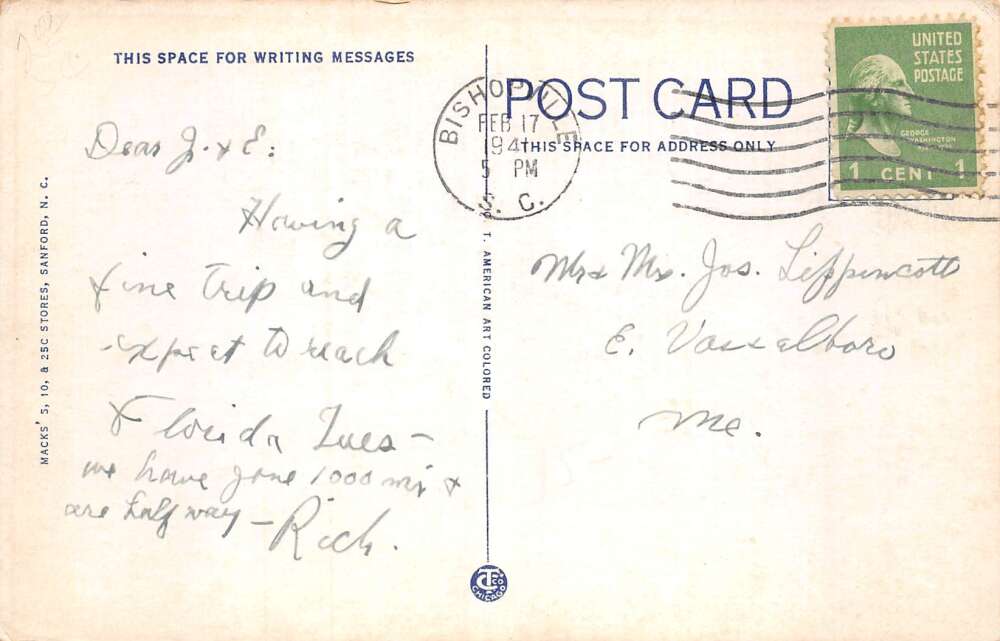 THIS SPACE FOR WRITING MESSAGES
Dear J. & E:
Having a
fine trip and
expect to reach
Florida Tues –
we have gone 1000 mi &
are half way – Rich.
MACKS' 5, 10, & 25C STORES, SANFORD, N. C.
C. T. AMERICAN ART COLORED
CT CO.
CHICAGO
POST CARD
THIS SPACE FOR ADDRESS ONLY
BISHOPVILLE
FEB 17
194
5 PM
S. C.
UNITED
STATES
POSTAGE
GEORGE
WASHINGTON
1 CENT 1
Mr & Mrs. Jos. Lippincott
E. Vassalboro
Me.